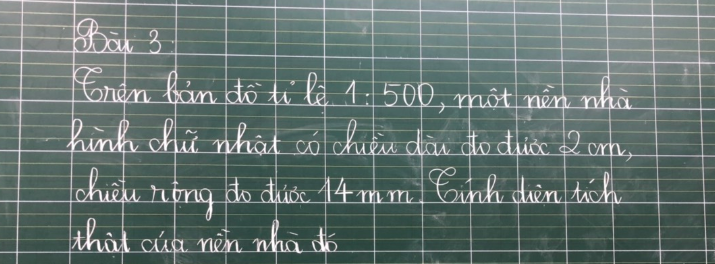 Bài 3:
Trên bản đồ tỉ lệ 1 : 500, một nền nhà
hình chữ nhật có chiều dài đo được 2 cm,
chiều rộng đo được 14 mm. Tính diện tích
thật của nền nhà đó